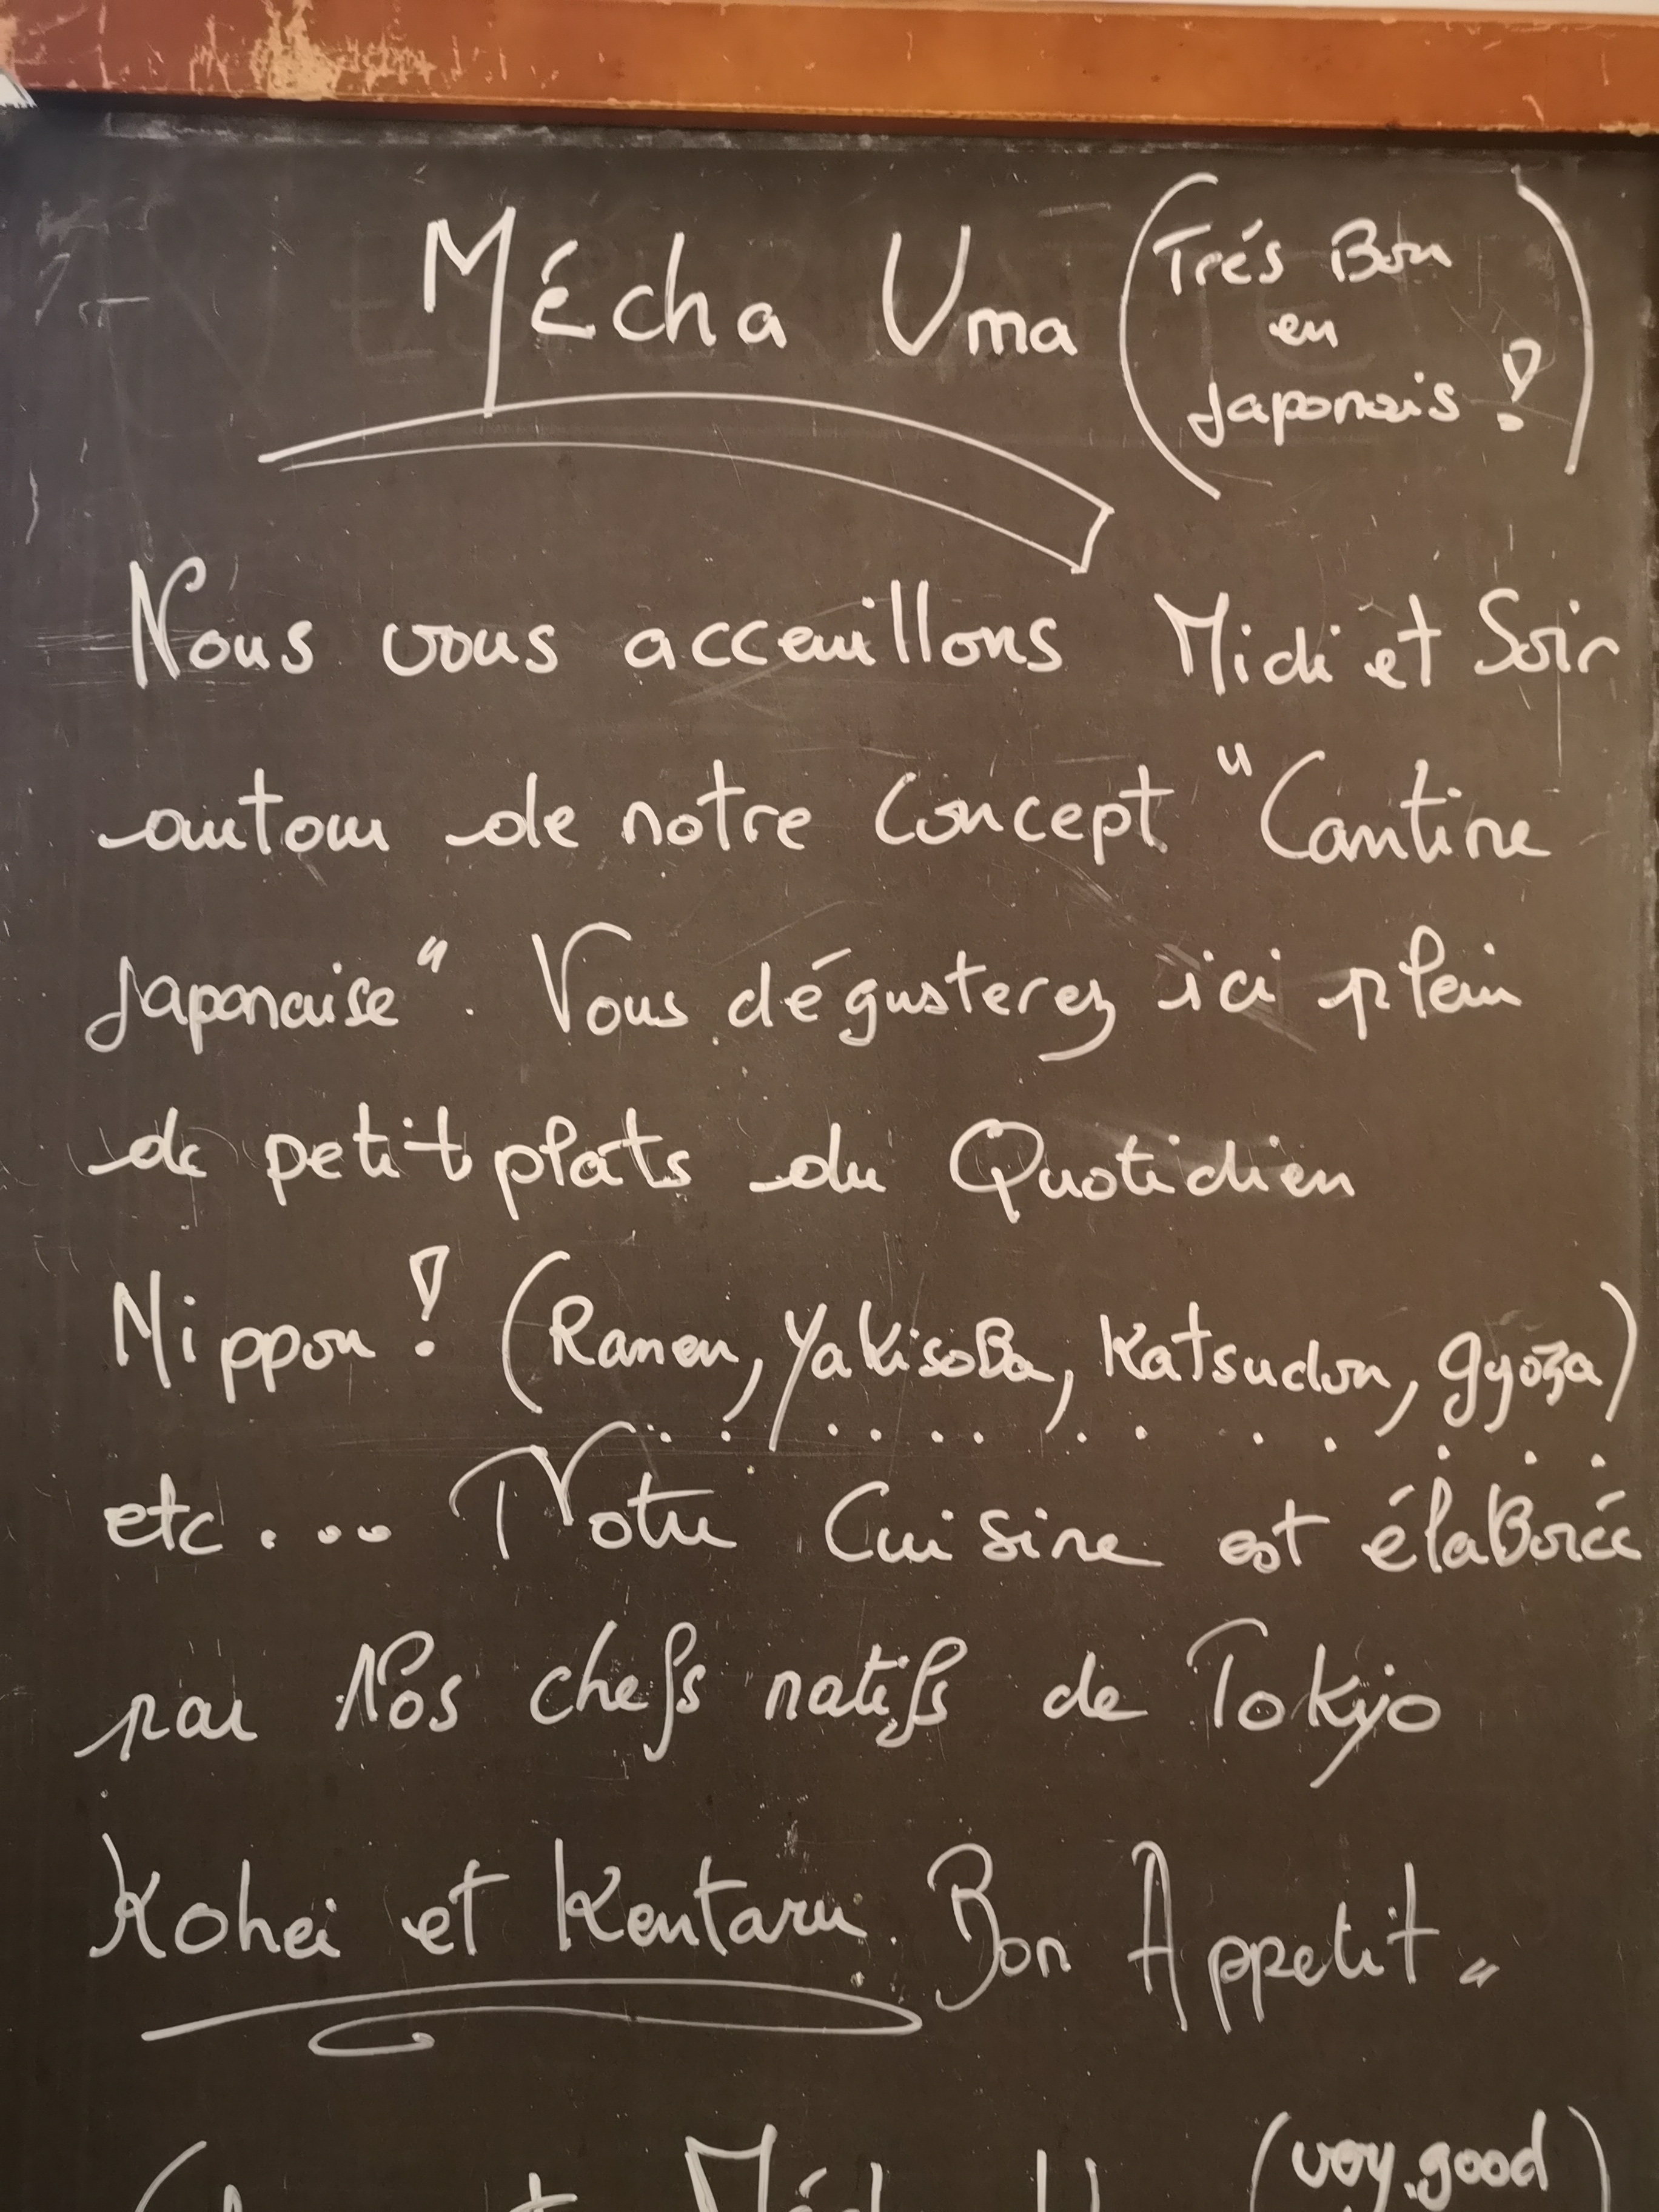 Mécha Uma (Trés Bon
en
Japonais !)
Nous vous acceuillons Midi et Soir
autour de notre Concept "Cantine
Japonaise". Vous dégusterez ici plein
de petit plats du Quotidien
Nippon ! (Ramen, YakisoBa, Katsudon, gyōza)
etc... Notre Cuisine est élaBorée
par Nos chefs natifs de Tokyo
Kohei et Kentaru. Bon Appetit.
(very good